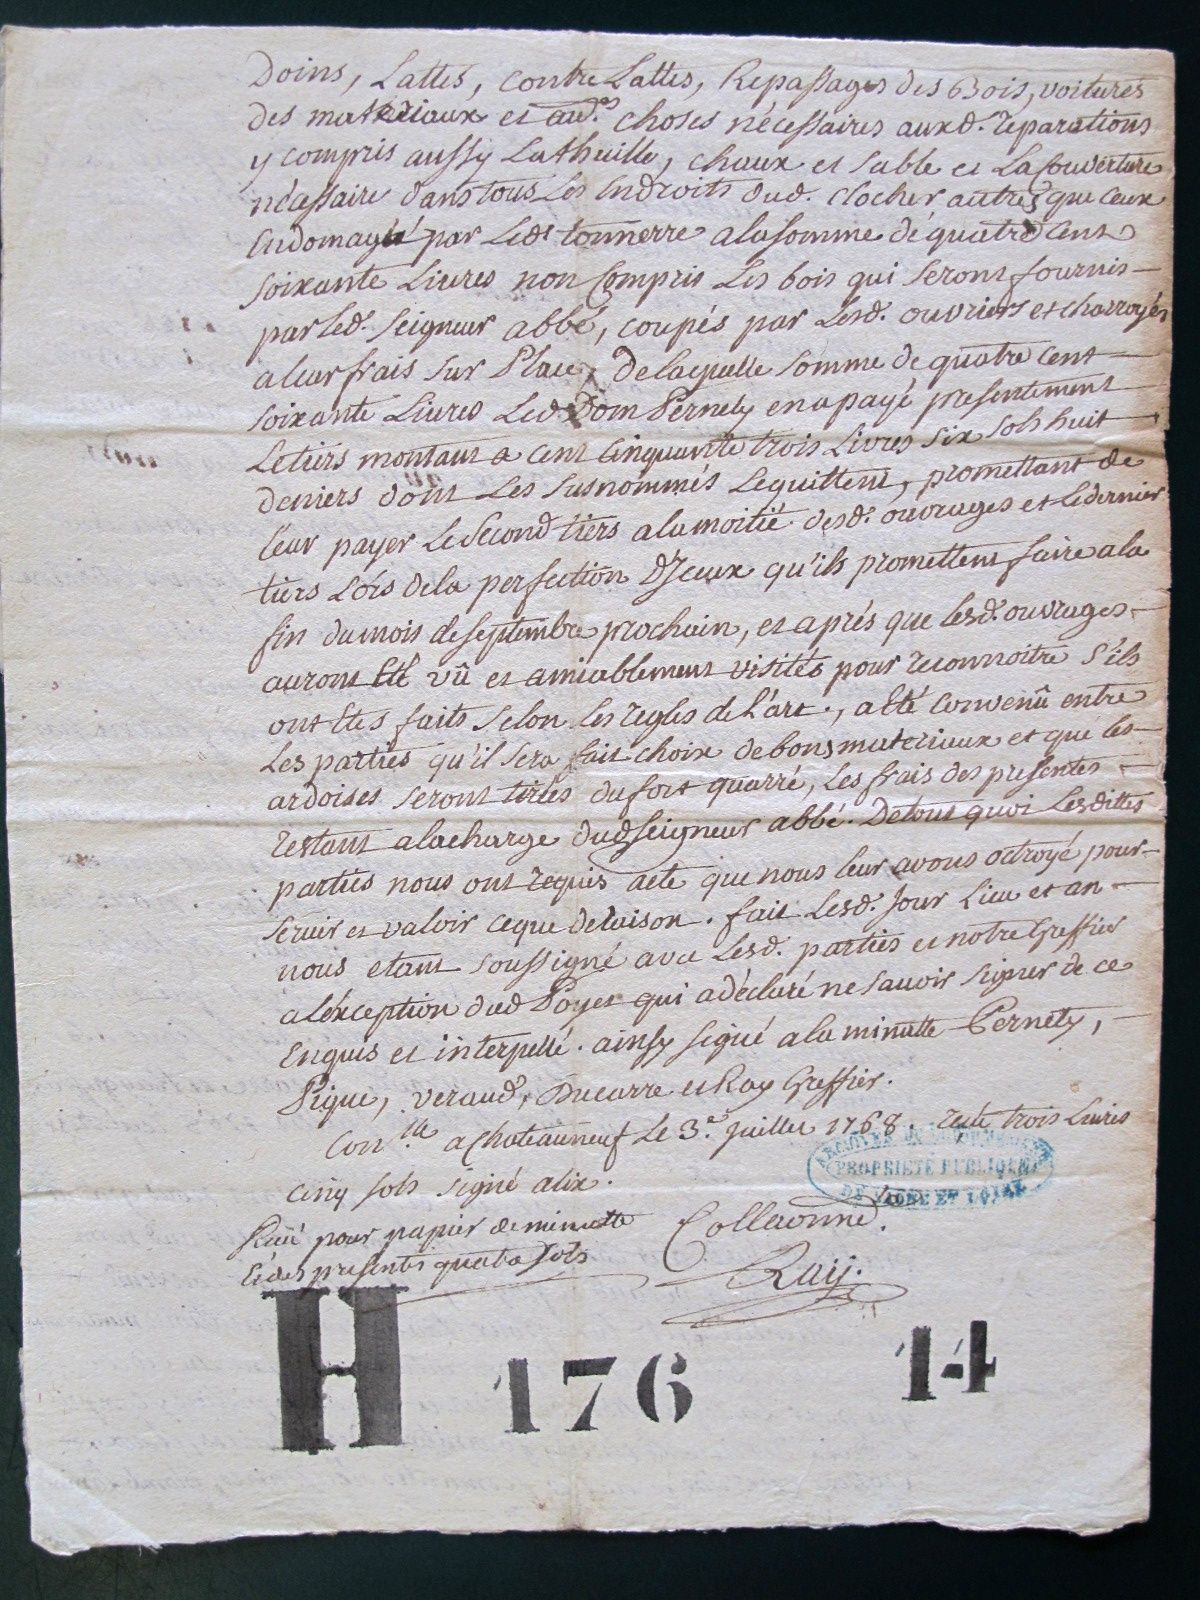 Doins, Lattes, contre Lattes, Repassages des Bois, voitures
des materiaux et aud.es choses nécessaires auxd. reparations
y compris aussy Lathuille, chaux et sable et La Couverture
nécassaire dans tous Les Endroits dud. clocher autres que ceux
Endomagé par Led. tonnerre ala somme de quatre Cent
soixante Livres non Compris Les bois qui seront fournis
par Led. seigneur abbé, coupés par Lesd. ouvriers et charroyés
a leur frais sur Place, de laquelle somme de quatre Cent
soixante Livres Led. Dom Pernety en a payé presentement
Le tiers montant a cent Cinquante trois Livres six sols huit
deniers dont Les susnommés Le quittent, promettant de
leur payer Le Second tiers a la moitié desd. ouvrages et Le dernier
tiers Lors de la perfection D'Iceux qu'ils promettent faire a la
fin du mois de septembre prochain, et aprés que lesd. ouvrages
auront Eté vû et amiablement visités pour reconnoitre s'ils
ont Etes faits selon Les regles de L'art., a Eté convenû entre
Les parties qu'il sera fait choix de bons materiaux et que les
ardoises seront tirées du fort quarré, Les frais des presentes
restant a la charge dud. seigneur abbé. De tout quoi Lesdittes
parties nous ont requis acte que nous leur avons octroyé pour
servir et valoir ce que de raison. fait Lesd. Jour Lieu et an
nous etant soussigné avec Lesd. parties et notre Greffier
a l'éxception dud Poyet qui a déclaré ne savoir signer de ce
Enquis et interpellé. ainsy signé a la minutte Pernety,
Pigue, veraud, Ducarre et Ray Greffier.
Con.lé a Chateauneuf Le 3.e juillet 1768. recu trois Livres
cinq sols signé alix.
Recu pour papier de minutte
Et des presentes quatre sols
Collaonné.
Raij.
ARCHIVES DÉPARTEMENTALES
PROPRIÉTÉ PUBLIQUE
DE SAÔNE ET LOIRE
H 176 14